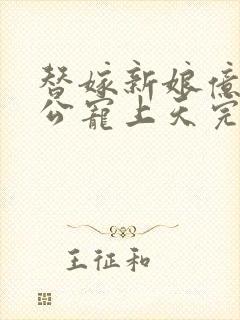 替嫁新娘億
公寵上天完
王征和